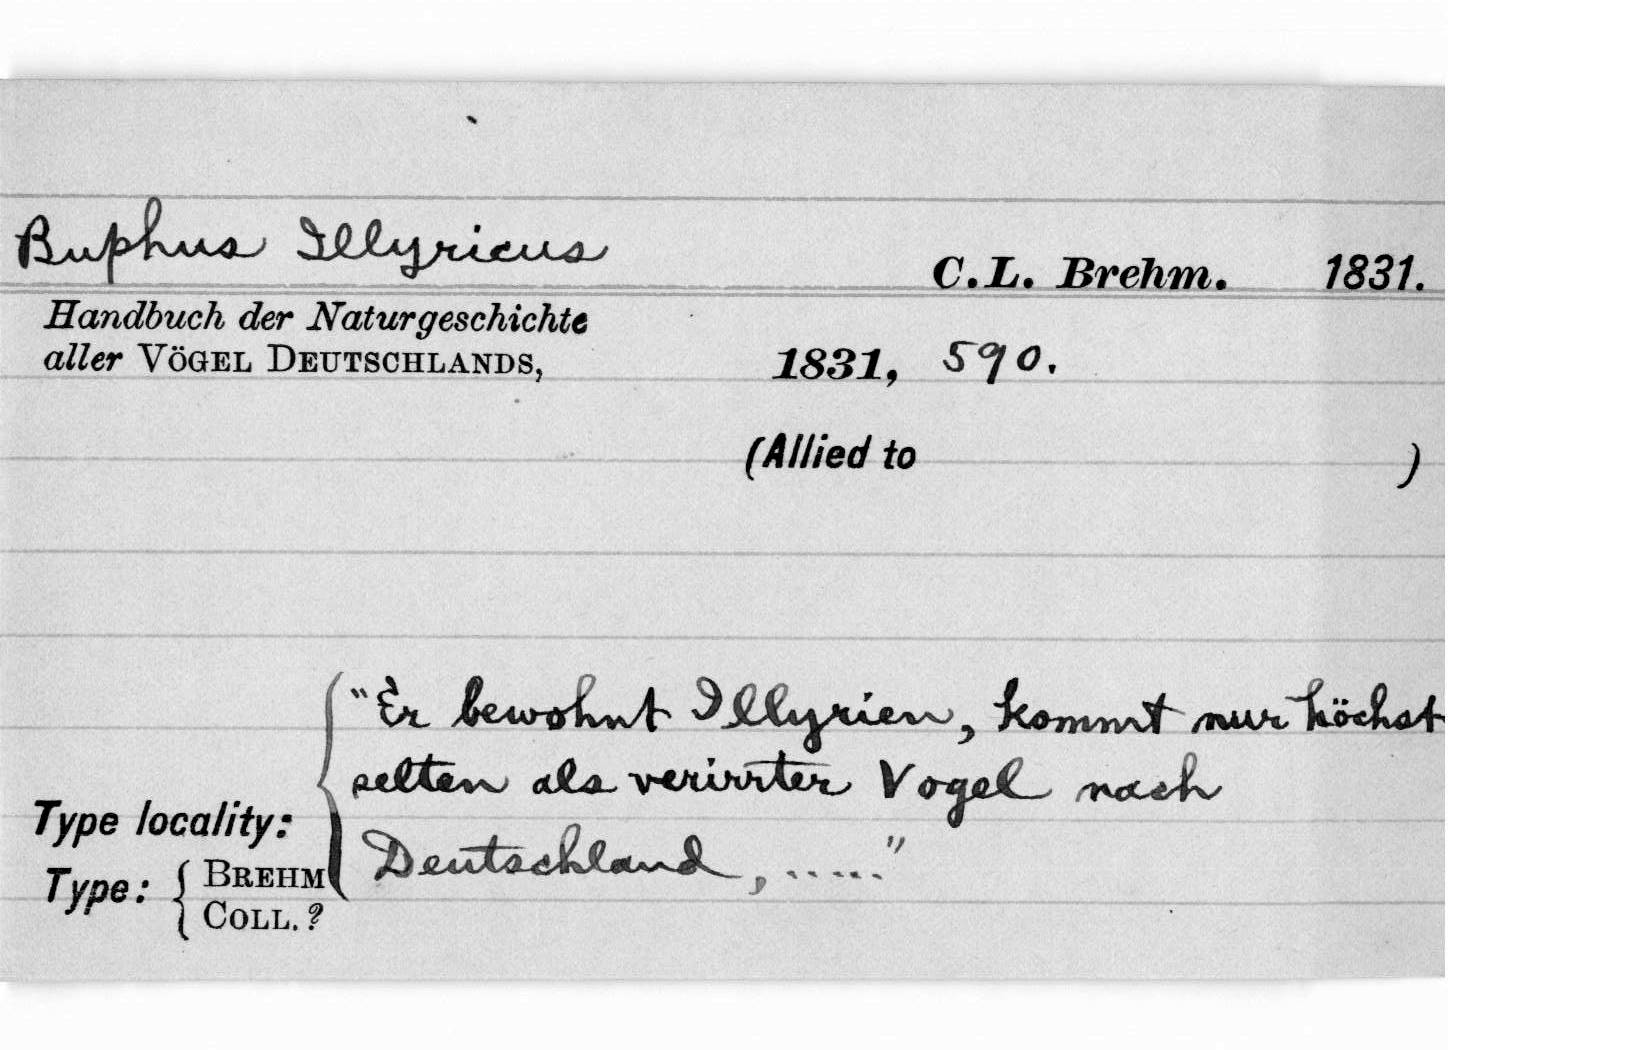 Buphus Illyricus
C.L. Brehm. 1831.
Handbuch der Naturgeschichte
aller VÖGEL DEUTSCHLANDS, 1831, 590.
(Allied to )
"Er bewohnt Illyrien, kommt nur höchst
selten als verirrter Vogel nach
Type locality:
Deutschland, ....."
Type: { BREHM
COLL. ?